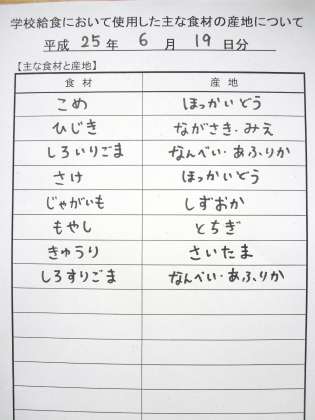 学校給食において使用した主な食材の産地について
平成 25 年 6 月 19 日分
【主な食材と産地】
食材 産地
こめ ほっかいどう
ひじき ながさき・みえ
しろいりごま なんべい・あふりか
さけ ほっかいどう
じゃがいも しずおか
もやし とちぎ
きゅうり さいたま
しろすりごま なんべい・あふりか